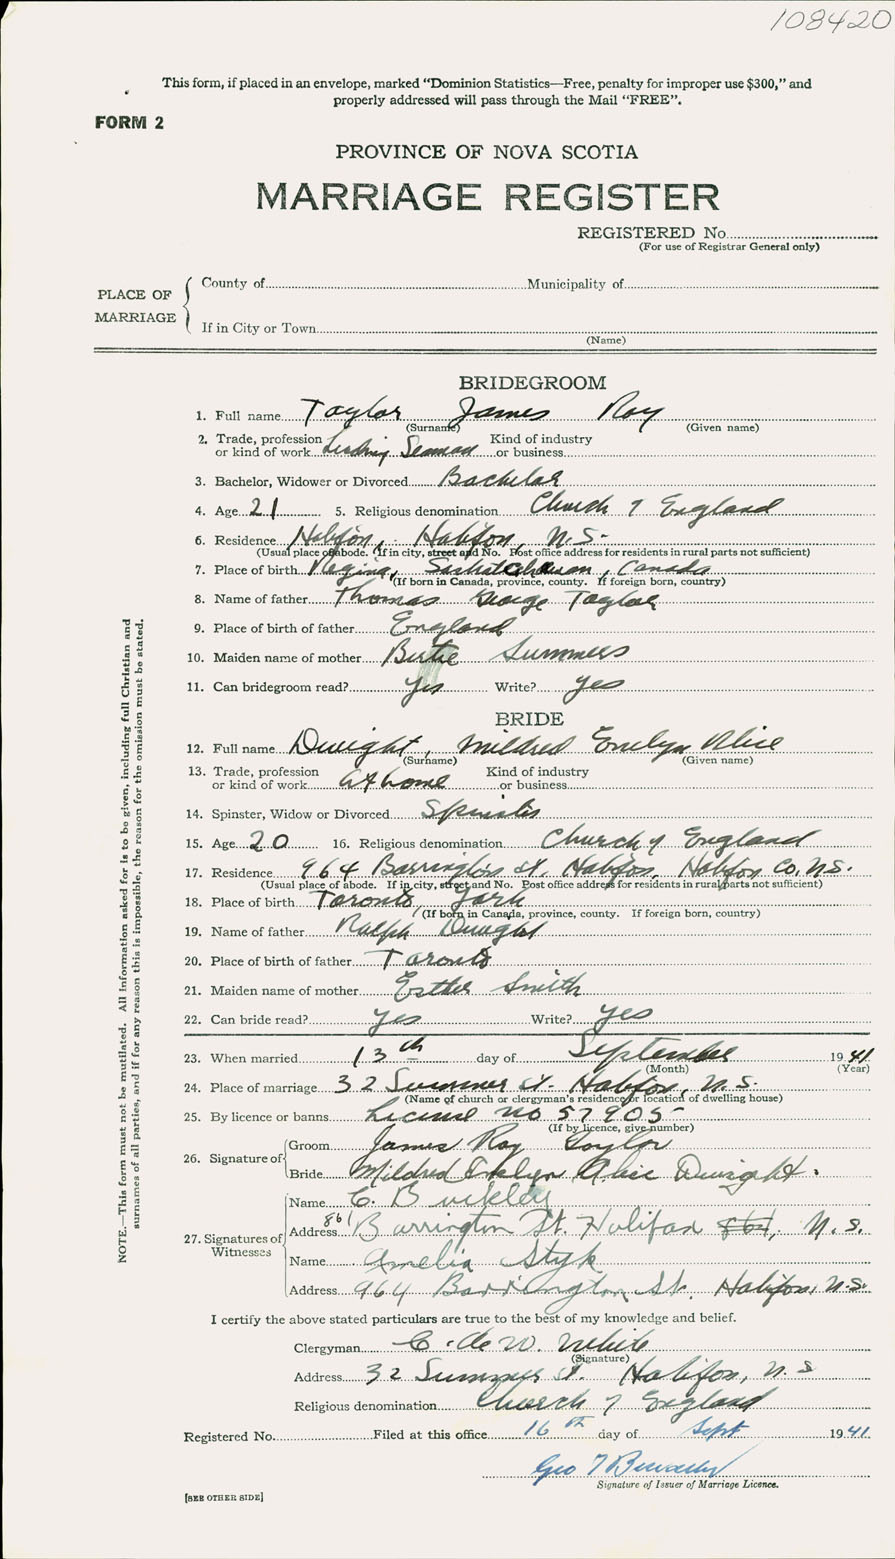 108420
This form, if placed in an envelope, marked “Dominion Statistics—Free, penalty for improper use $300,” and
properly addressed will pass through the Mail “FREE”.
FORM 2
PROVINCE OF NOVA SCOTIA
MARRIAGE REGISTER
REGISTERED No.
(For use of Registrar General only)
PLACE OF MARRIAGE
County of Municipality of
If in City or Town
(Name)
BRIDEGROOM
1. Full name Taylor James Roy
(Surname) (Given name)
2. Trade, profession or kind of work Leading Seaman Kind of industry or business
3. Bachelor, Widower or Divorced Bachelor
4. Age 21 5. Religious denomination Church of England
6. Residence Halifax, Halifax, N.S.
(Usual place of abode. If in city, street and No. Post office address for residents in rural parts not sufficient)
7. Place of birth Regina, Saskatchewan, Canada
(If born in Canada, province, county. If foreign born, country)
8. Name of father Thomas George Taylor
9. Place of birth of father England
10. Maiden name of mother Bertie Summers
11. Can bridegroom read? Yes Write? Yes
BRIDE
12. Full name Dwight, Mildred Evelyn Alice
(Surname) (Given name)
13. Trade, profession or kind of work At home Kind of industry or business
14. Spinster, Widow or Divorced Spinster
15. Age 20 16. Religious denomination Church of England
17. Residence 964 Barrington St. Halifax, Halifax Co. N.S.
(Usual place of abode. If in city, street and No. Post office address for residents in rural parts not sufficient)
18. Place of birth Toronto, York
(If born in Canada, province, county. If foreign born, country)
19. Name of father Ralph Dwight
20. Place of birth of father Toronto
21. Maiden name of mother Esther Smith
22. Can bride read? Yes Write? Yes
23. When married 13th day of September 1941
(Month) (Year)
24. Place of marriage 32 Summer St. Halifax, N.S.
(Name of church or clergyman's residence or location of dwelling house)
25. By licence or banns License no 57905
(If by licence, give number)
26. Signature of
Groom James Roy Taylor
Bride Mildred Evelyn Alice Dwight.
27. Signatures of Witnesses
Name C. Buckley
Address 861 Barrington St. Halifax 864, N.S.
Name Amelia Styk
Address 964 Barrington St. Halifax, N.S.
I certify the above stated particulars are true to the best of my knowledge and belief.
Clergyman C. de W. White
(Signature)
Address 32 Summer St. Halifax, N.S
Religious denomination Church of England
Registered No. Filed at this office 16th day of Sept 1941.
Geo T
Signature of Issuer of Marriage Licence.
[SEE OTHER SIDE]
NOTE.—This form must not be mutilated. All information asked for is to be given, including full Christian and
surnames of all parties, and if for any reason this is impossible, the reason for the omission must be stated.